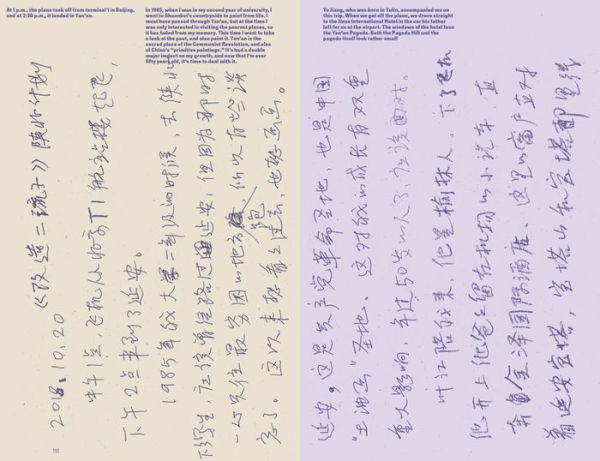 At 1 p.m., the plane took off from terminal 1 in Beijing,
and at 2:30 p.m., it landed in Yan'an.
In 1985, when I was in my second year of university, I
went to Shaanbei's countryside to paint from life. I
must have passed through Yan'an, but at the time I
was only interested in visiting the poorest places, so
it has faded from my memory. This time I want to take
a look at the past, and also paint it. Yan'an is the
sacred place of the Communist Revolution, and also
of China's "primitive paintings." It's had a double
major impact on my growth, and now that I'm over
fifty years old, it's time to deal with it.
《改造二流子》陕北计划
2018.10.20
中午1点，飞机从北京T1航站楼起飞，
下午2点半到了延安。
1985年我大学二年级的时候，去陕北
写生，应该曾经路过延安，但因为那时
一心只往最穷困的地方跑，所以有些淡
忘了。这次来看看过去，也想画画。
110
Ye Jiang, who was born in Yulin, accompanied me on
this trip. When we got off the plane, we drove straight
to the Jinze International Hotel in the car his father
left for us at the airport. The windows of the hotel face
the Yan'an Pagoda. Both the Pagoda Hill and the
pagoda itself look rather small
延安，这是共产党革命圣地，也是中国
“土油画”圣地。这对我的成长有双重
重大影响，年过50岁的人了，应该面对。
叶江陪我来，他是榆林人。下了飞机
他开上他爸爸留在机场的小汽车，直
奔金泽国际酒店。这里的窗户正对
着延安宝塔，宝塔山和宝塔都显得